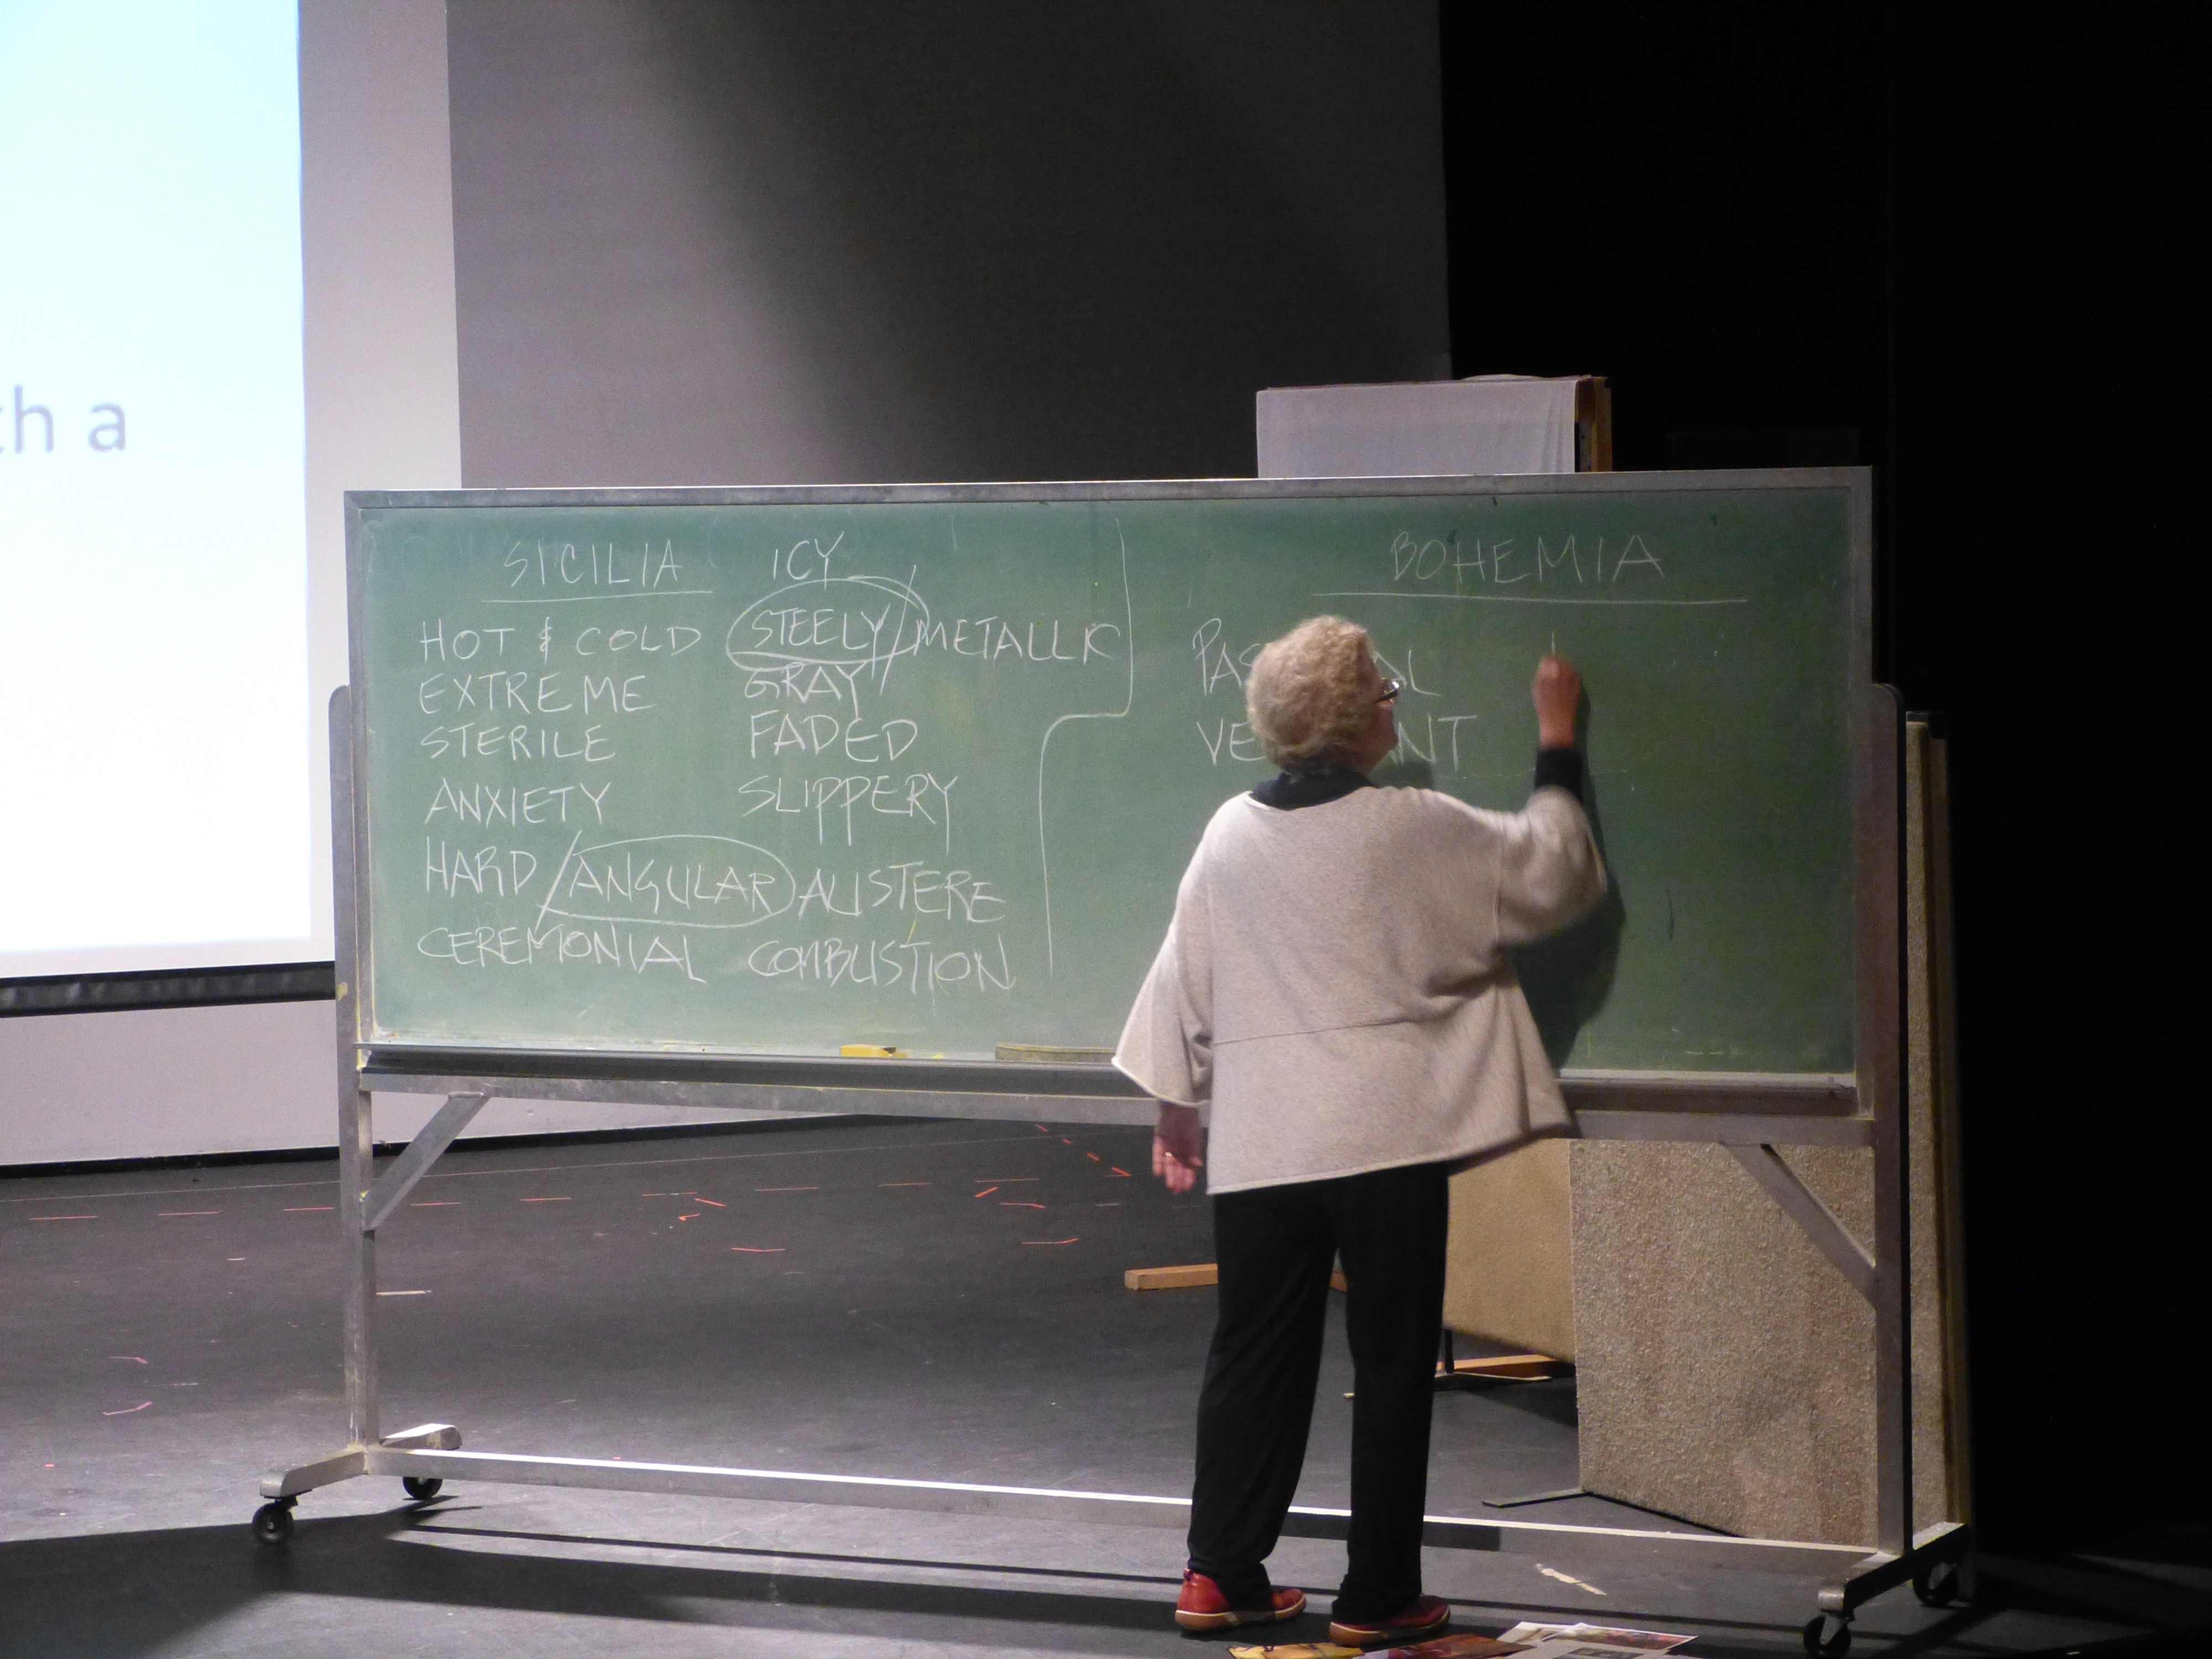 ch a
SICILIA ICY BOHEMIA
HOT & COLD STEELY/METALLIC
EXTREME GRAY
STERILE FADED
ANXIETY SLIPPERY
HARD/ANGULAR AUSTERE
CEREMONIAL COMBUSTION